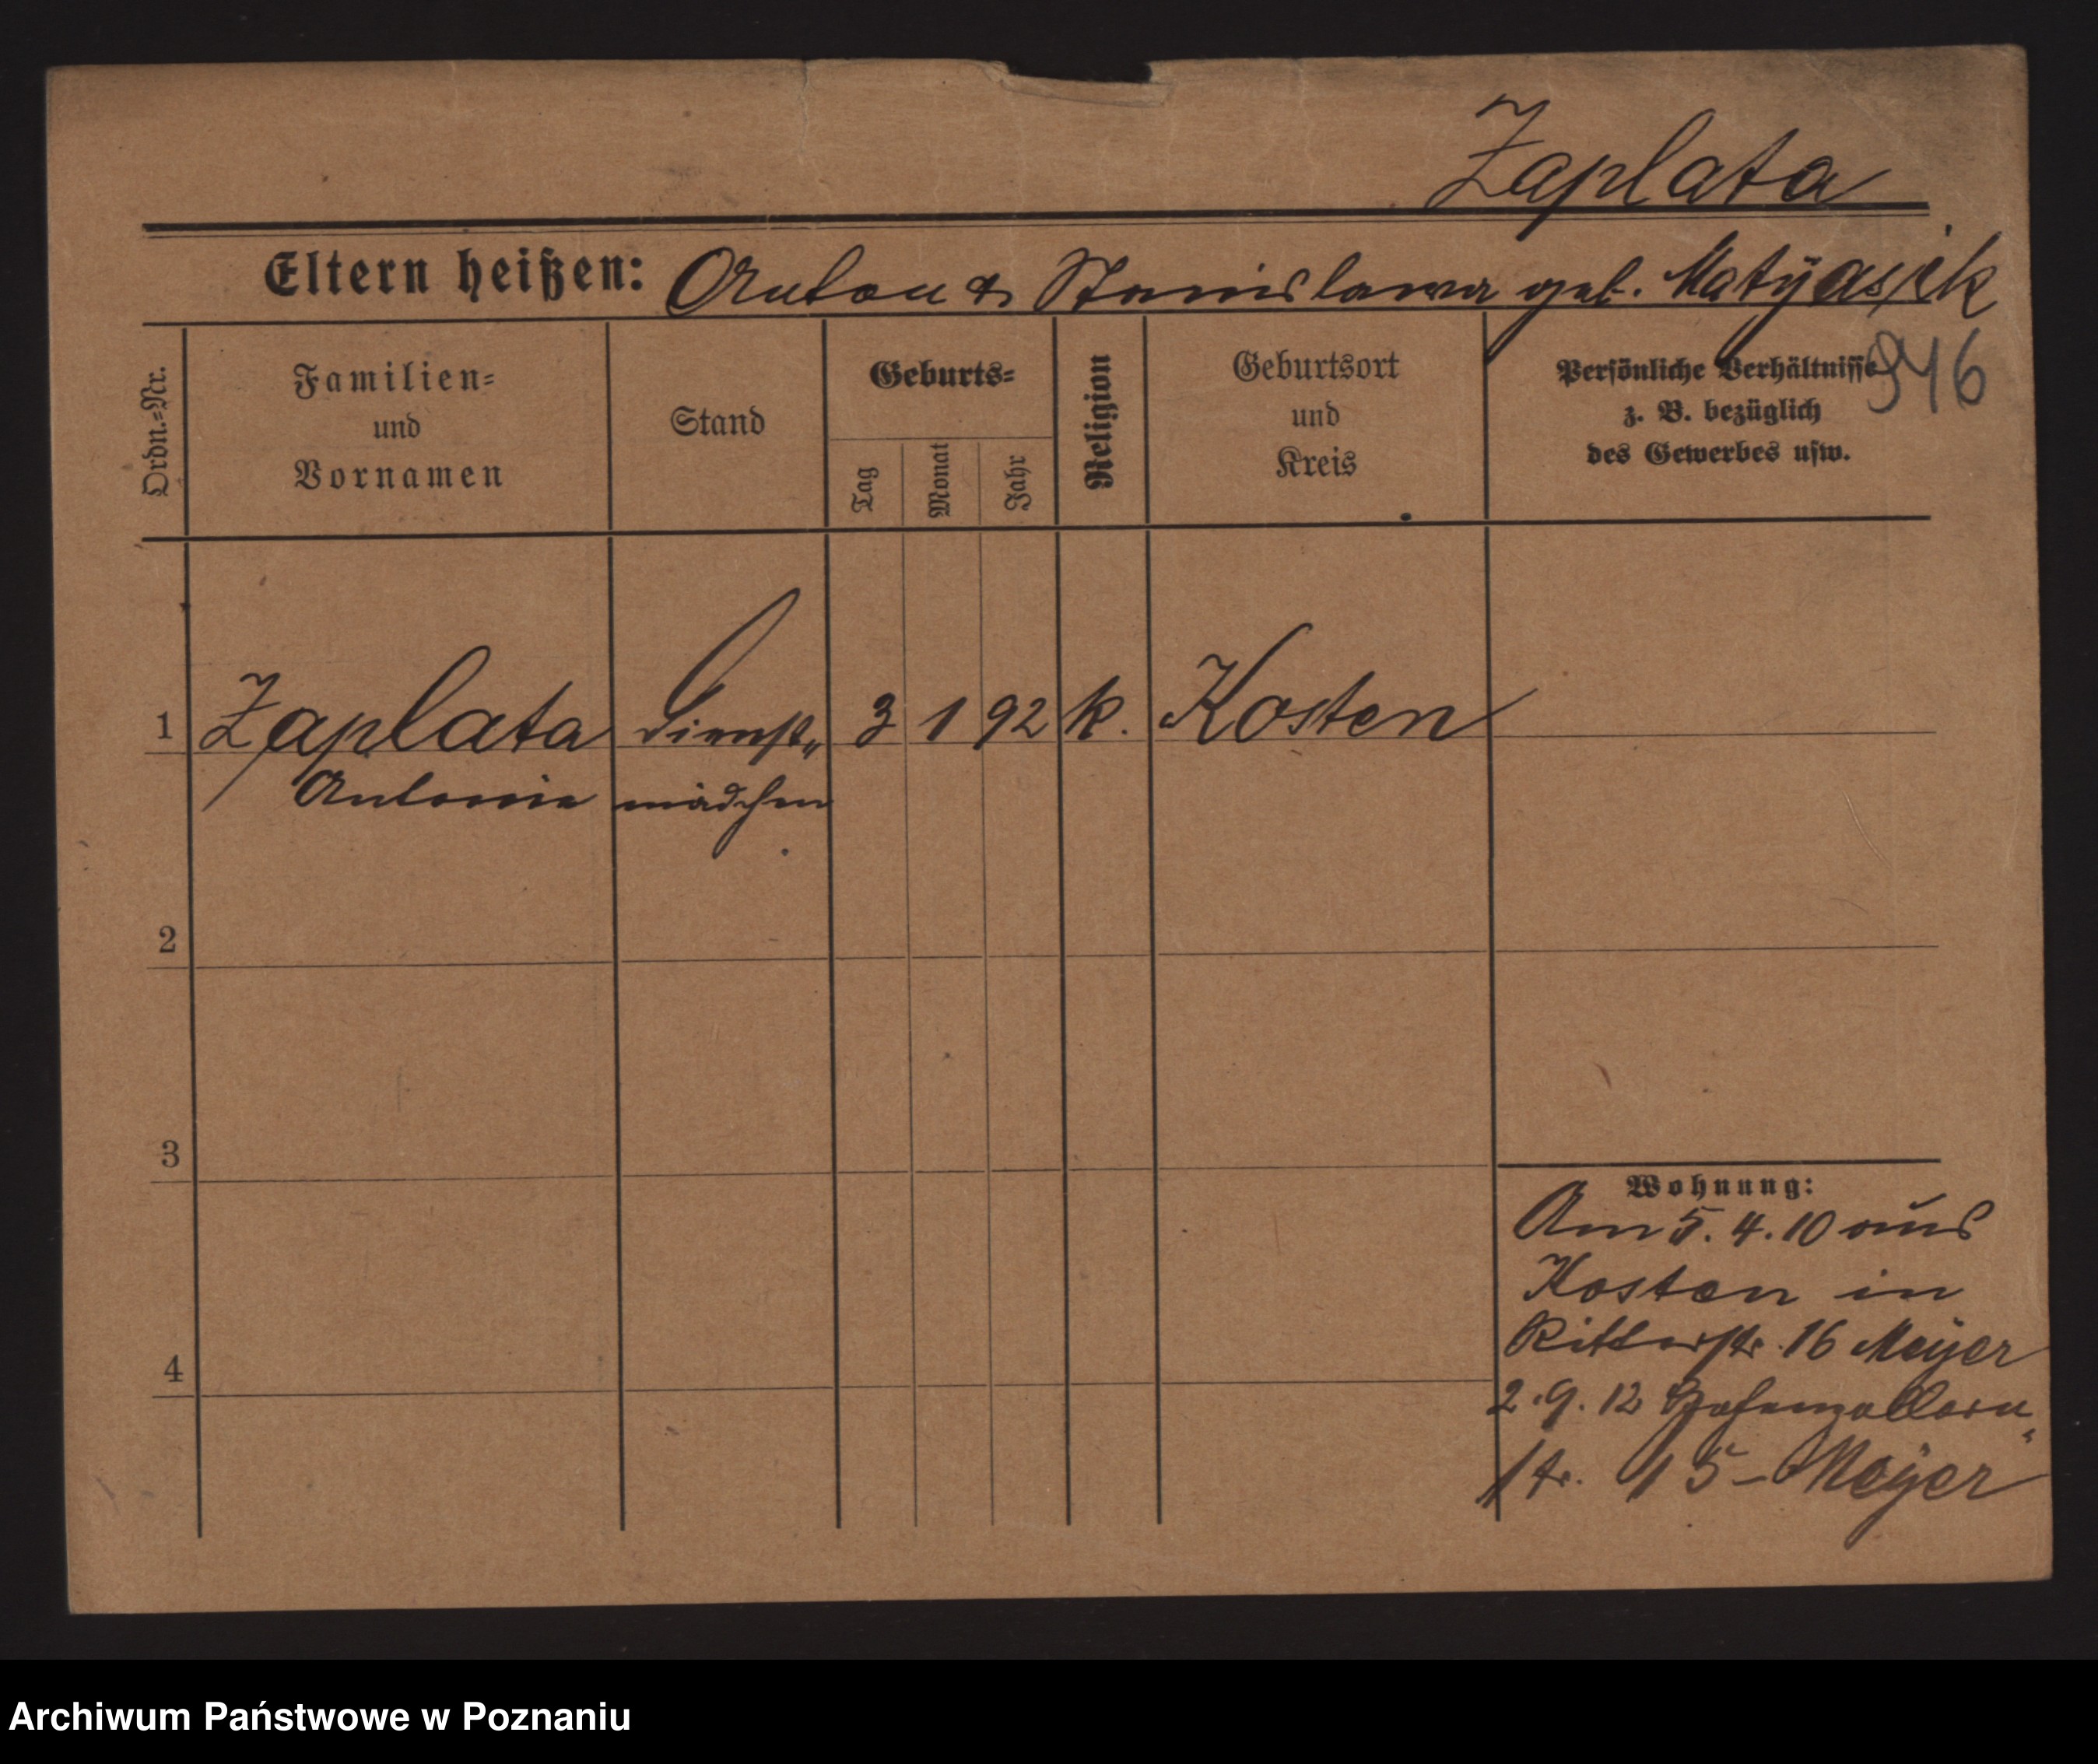 Zaplata
Eltern heißen: Anton & Stanislawa geb. Matÿasik
946
Ordn.=Nr.
Familien=
und
Vornamen
Stand
Geburts=
Tag
Monat
Jahr
Religion
Geburtsort
und
Kreis
Persönliche Verhältnisse
z. B. bezüglich
des Gewerbes usw.
1 Zaplata Dienst„ 3 1 92 k. Kosten
Antonie mädchen
2
3
4
Wohnung:
Am 5. 4. 10 aus
Kosten in
Ritterstr. 16 Meÿer
2. 9. 12 Hohenzollern„
str. 15 - Meÿer
Archiwum Państwowe w Poznaniu